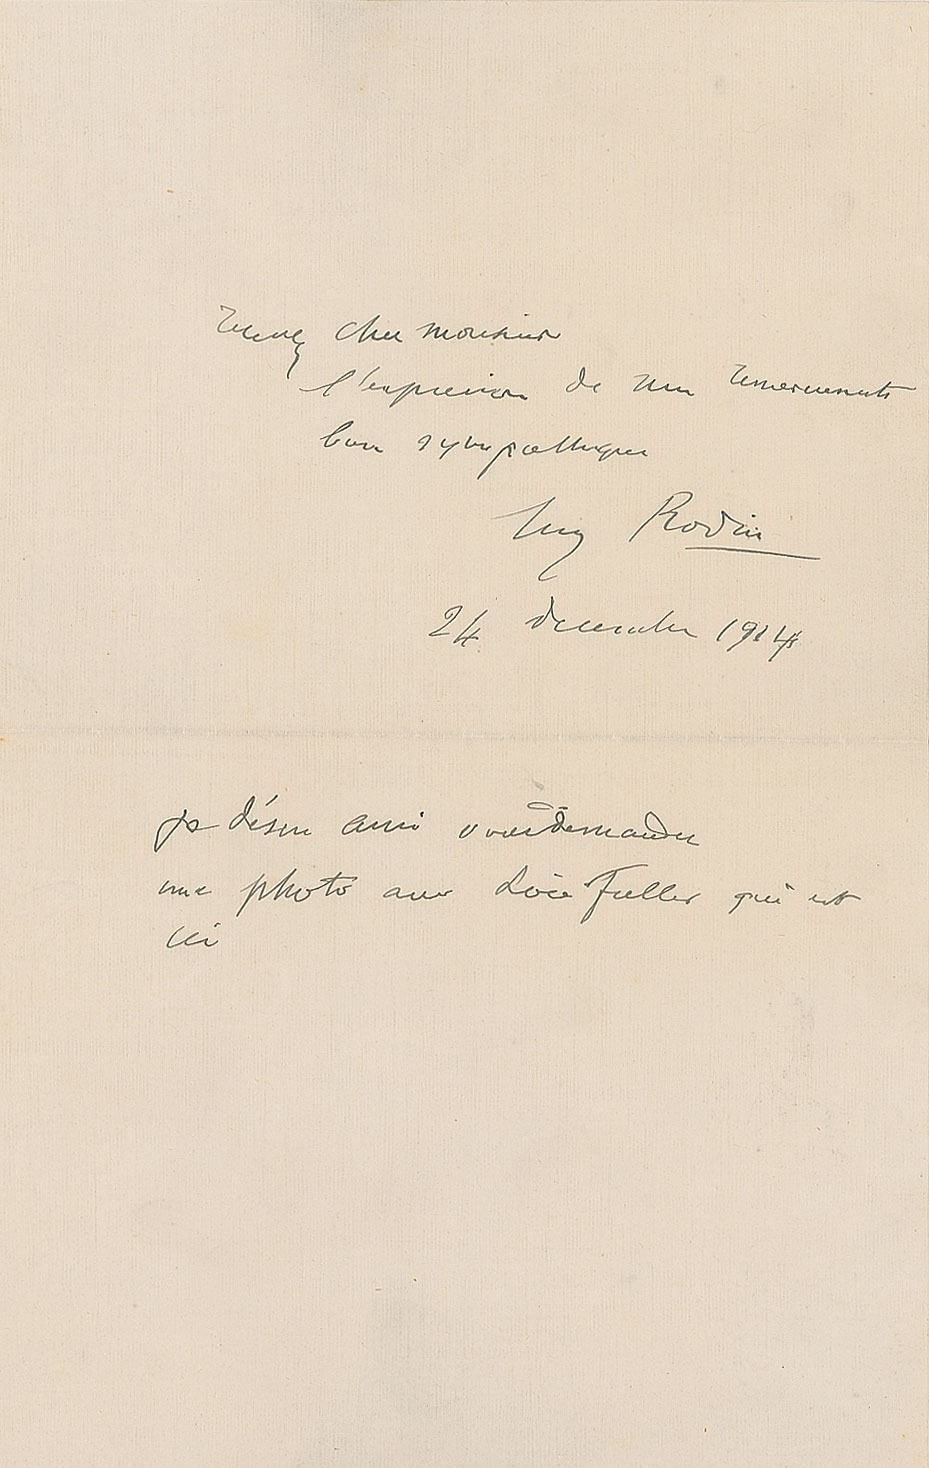 Recevez cher monsieur
l'expression de mes remerciements
bien sympathiques
Aug Rodin
24 decembre 1914
je désire aussi vous demander
une photo avec Loïe Fuller qui est
ici